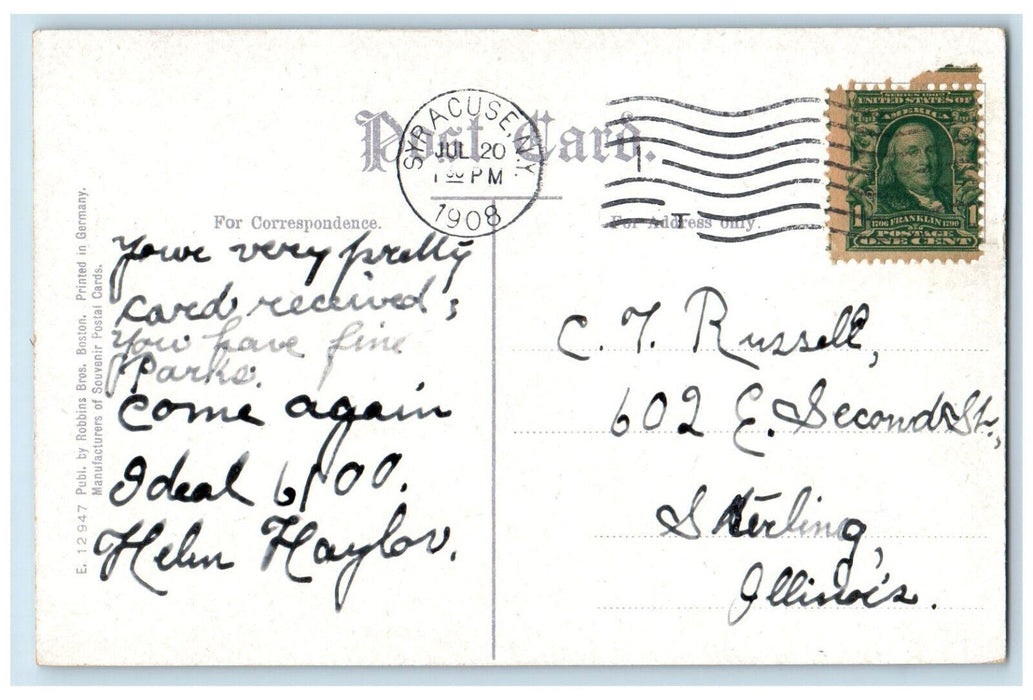 Post Card.
SYRACUSE, N.Y.
JUL 20
PM
1908
SERIES 1902
UNITED STATES OF
AMERICA
1706 FRANKLIN 1790
POSTAGE
1 1
ONE CENT
For Correspondence.
For Address only.
Your very pretty
card received;
You have fine
Parks.
Come again
Ideal 6100.
Helen Haylor.
C. T. Russell,
602 E. Second St.,
Sterling,
Illinois.
E. 12947 Publ. by Robbins Bros. Boston. Printed in Germany.
Manufacturers of Souvenir Postal Cards.